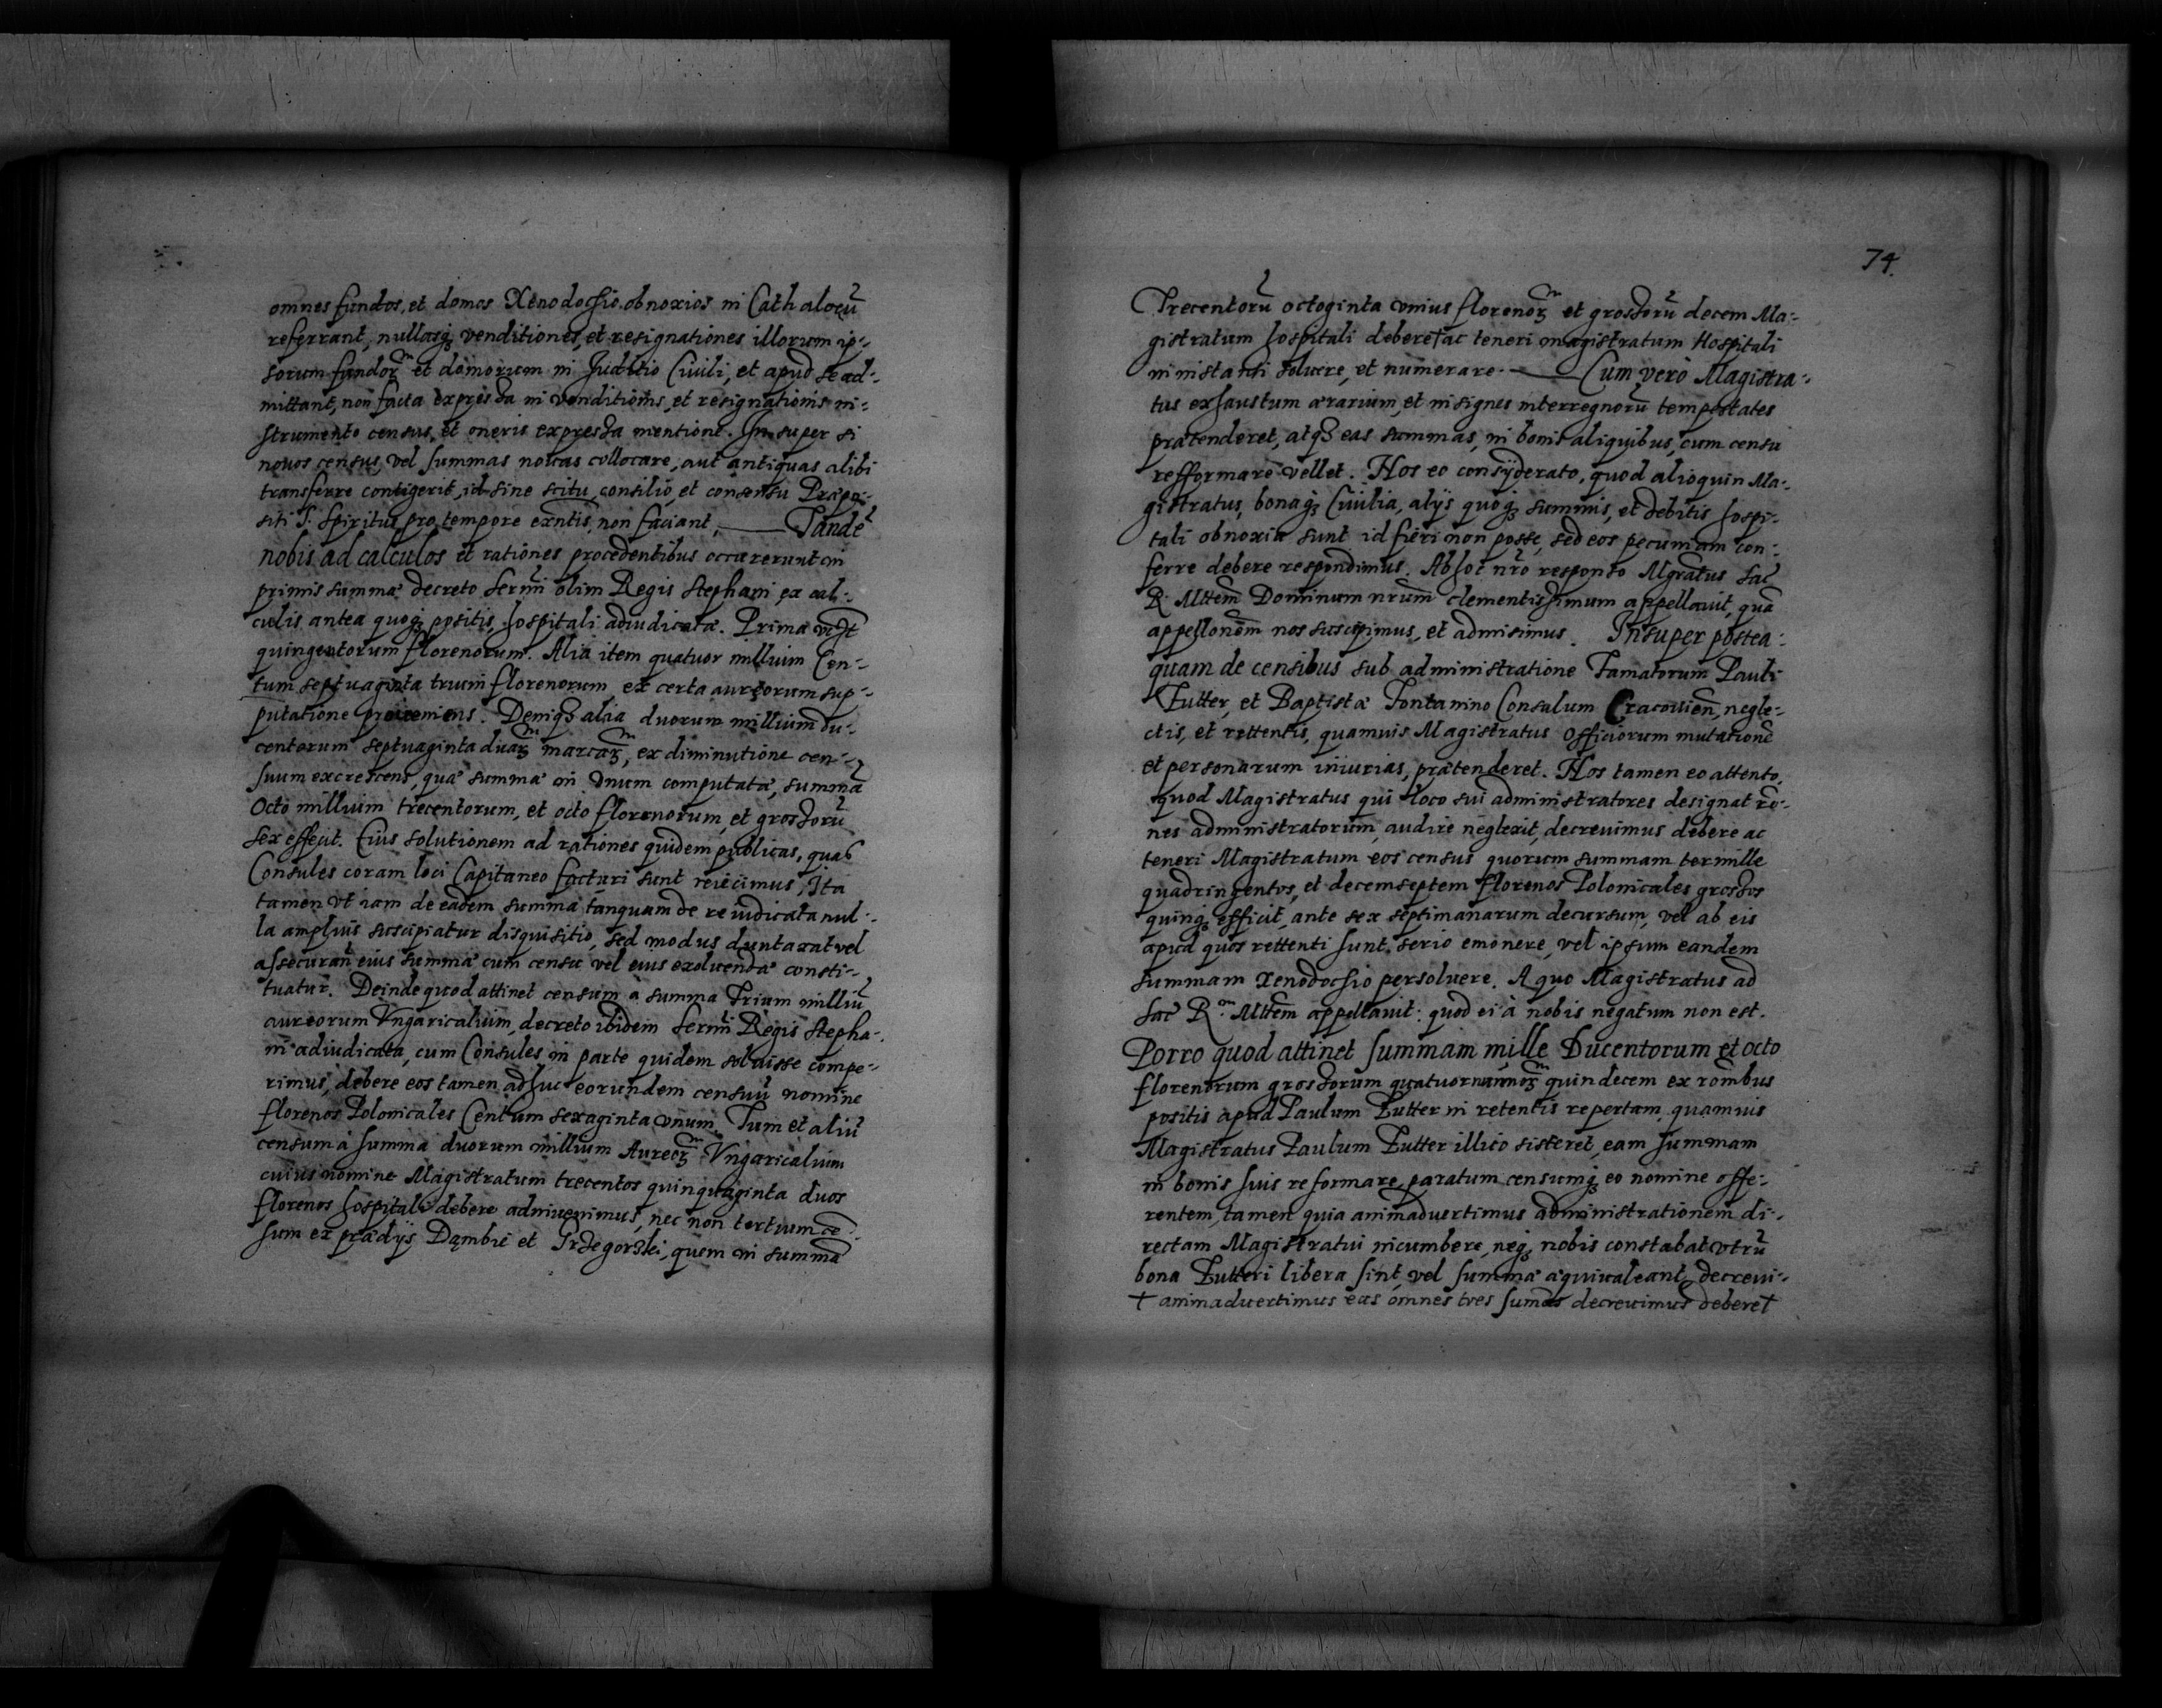 omnes fundos, et domos Xenodochio obnoxios in Cathalogū
referrant, nullasq; venditiones, et resignationes illorum ip-
sorum fundoꝝ et domorum in Juditio Ciuili, et apud se ad-
mittant, non facta expressa in venditionis, et resignationis in-
strumento census, et oneris expressa mentione. Insuper si
nouos census, vel summas nouas collocare, aut antiquas alibi
transferre contigerit, id sine scitu, consilio, et consensu Præpo-
siti S. Spiritus pro tempore exntis, non faciant, Tandē
nobis ad calculos et rationes procedentibus occurerunt in
primis summæ decreto Sermi olim Regis Stephani ex cal-
culis antea quoq; positis, hospitali adiudicatæ. Prima
quingentorum florenorum. Alia item quatuor millium Cen-
tum septuaginta trium florenorum, ex certa aureorum sup-
putatione proueniens. Deniq; alia duorum millium du-
centorum septuaginta duaꝝ marcaꝝ, ex diminutione cen-
suum excrescens, quæ summæ in vnum computatæ, summā
Octo millium trecentorum, et octo florenorum, et grossorū
sex effecit. Eius solutionem ad rationes quidem publicas, quas
Consules coram loci Capitaneo facturi sunt reiecimus, Ita
tamen vt iam de eadem summa tanquam de re iudicata nul-
la amplius suscipiatur disquisitio, sed modus duntaxat vel
assecuran̄ eius summæ cum censu vel eius exoluendæ consti-
tuatur. Deinde quod attinet censum a summa Trium milliū
aureorum Vngaricalium, decreto ibidem Sermi Regis Stepha-
ni adiudicata, cum Consules in parte quidem soluisse compe-
rimus, debere eos tamen adhuc eorundem censuū nomine
florenos Polonicales Centum sexaginta vnum. Tum et aliū
censum a summa duorum millium Aureoꝝ Vngaricalium
cuius nomine Magistratum trecentos quinquaginta duos
florenos hospitali debere adinuenimus, nec non tertium cē-
sum ex prædijs Dąmbie et Grzegorzki, quem in summa
74.
Trecentorū octoginta vnius florenoꝝ et grossorū decem Ma-
gistratum hospitali debere† ac teneri magistratum Hospitali
in instanti soluere, et numerare. Cum vero Magistra-
tus exhaustum ærarium, et insignes interregnorū tempestates
prætenderet, atq; eas summas, in bonis aliquibus, cum censu
refformare vellet. Nos eo consÿderato, quod alioquin Ma-
gistratus, bonaq; Ciuilia, alijs quoq; summis, et debitis hospi-
tali obnoxia sunt id fieri non posse, sed eos pecuniam con-
ferre debere respondimus. Ab hoc nr̄o responso Mgratus Sac
R. Mttem Dominum nrum clementissimum appellauit, quā
appellonem nos suscepimus, et admisimus. Insuper postea-
quam de censibus sub administratione Famatorum Pauli
Zutter, et Baptistæ Fontanino Consulum Cracouien̄, negle-
ctis, et rettentis, quamuis Magistratus Officiorum mutationē
et personarum iniurias, prætenderet. Nos tamen eo attento,
quod Magistratus qui loco sui administratores designat ro-
nes administratorum, audire neglexit, decreuimus debere ac
teneri Magistratum eos census quorum summam ter mille
quadringentos, et decemseptem florenos Polonicales grossos
quinq; efficit, ante sex septimanarum decursum, vel ab eis
apud quos rettenti sunt, serio emonere, vel ipsum eandem
summam Xenodochio persoluere. A quo Magistratus ad
Sac R. Mttem appellauit: quod ei à nobis negatum non est.
Porro quod attinet summam mille Ducentorum et octo
florenorum grossorum quatuor nummoꝝ quindecem ex rombus
positis apud Paulum Zutter in retentis repertam, quamuis
Magistratus Paulum Zutter illico sisteret, eam summam
in bonis suis reformare, paratum censumq; eo nomine offe-
rentem, tamen quia animaduertimus administrationem di-
rectam Magistratui incumbere, neq; nobis constabat vtrū
bona Zutteri libera sint, vel summæ æquiualeant, decreui-
† animaduertimus eas omnes tres sumās decreuimus debere†